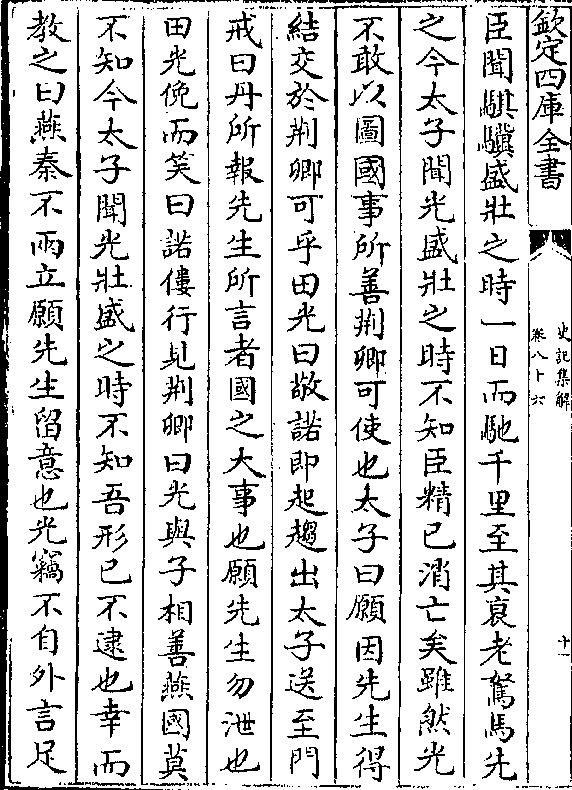 欽定四庫全書
史記集解
卷八十六
十一
臣聞騏驥盛壯之時一日而馳千里至其衰老駑馬先
之今太子聞光盛壯之時不知臣精已消亡矣雖然光
不敢以圖國事所善荆卿可使也太子曰願因先生得
結交於荆卿可乎田光曰敬諾即起趨出太子送至門
戒曰丹所報先生所言者國之大事也願先生勿泄也
田光俛而笑曰諾僂行見荆卿曰光與子相善燕國莫
不知今太子聞光壯盛之時不知吾形已不逮也幸而
教之曰燕秦不兩立願先生留意也光竊不自外言足